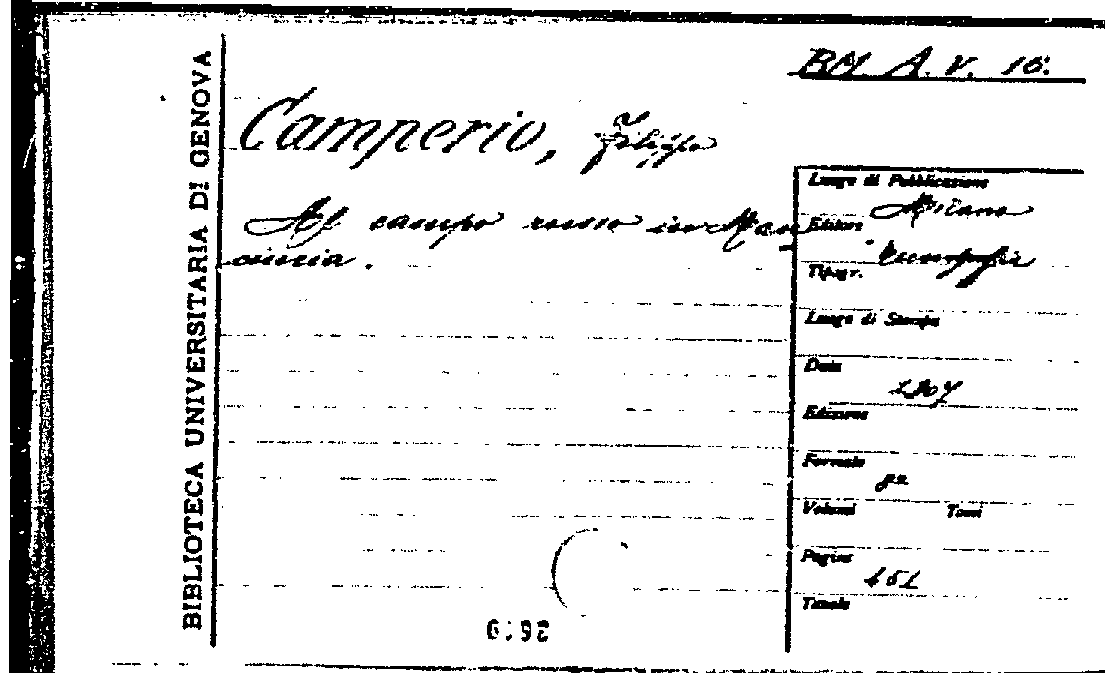 BIBLIOTECA UNIVERSITARIA DI GENOVA
BM. A. V. 16.
Camperio, Filippo
Al campo russo in Man
ciuria.
Luogo di Pubblicazione
Milano
Editore
Tipogr.
Luogo di Stampa
Data
1907
Edizione
Formato
Volumi Tomi
Pagine
151
Tavole